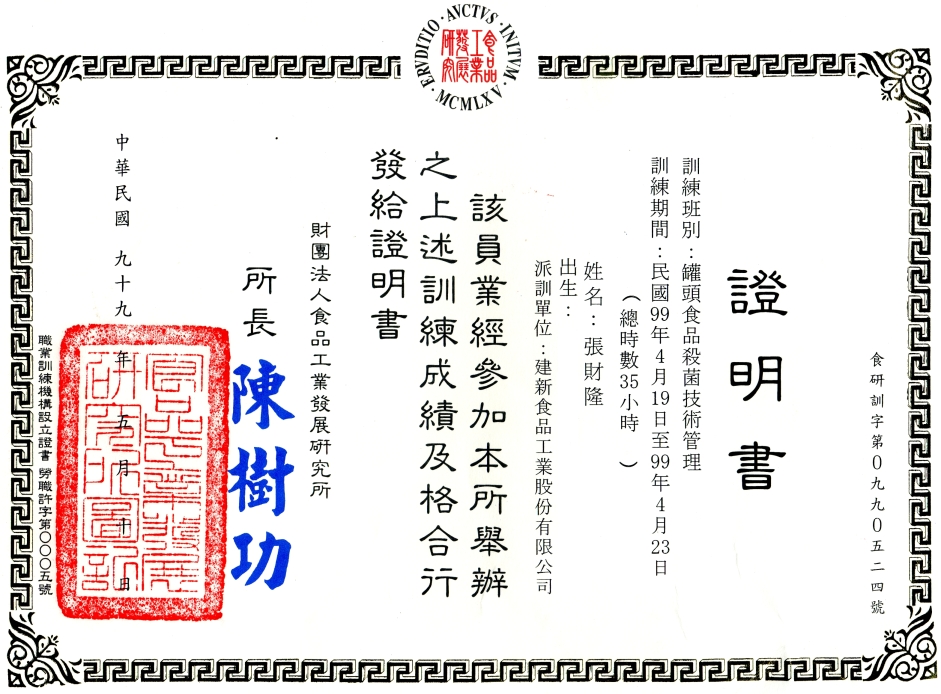 ERVDITIO · AVCTVS · INITVM · MCMLXV ·
食品
工業
發展
研究
食研訓字第０九九０五二四號
證明書
訓練班別：罐頭食品殺菌技術管理
訓練期間：民國99年4月19日至99年4月23日
（總時數35小時）
姓名：張財隆
出生：
派訓單位：建新食品工業股份有限公司
該員業經參加本所舉辦
之上述訓練成績及格合行
發給證明書
財團法人食品工業發展研究所
所長 陳樹功
中華民國 九十九 年 五 月 十 日
食品工業發展
研究所圖記
職業訓練機構設立證書 勞職許字第０００五號